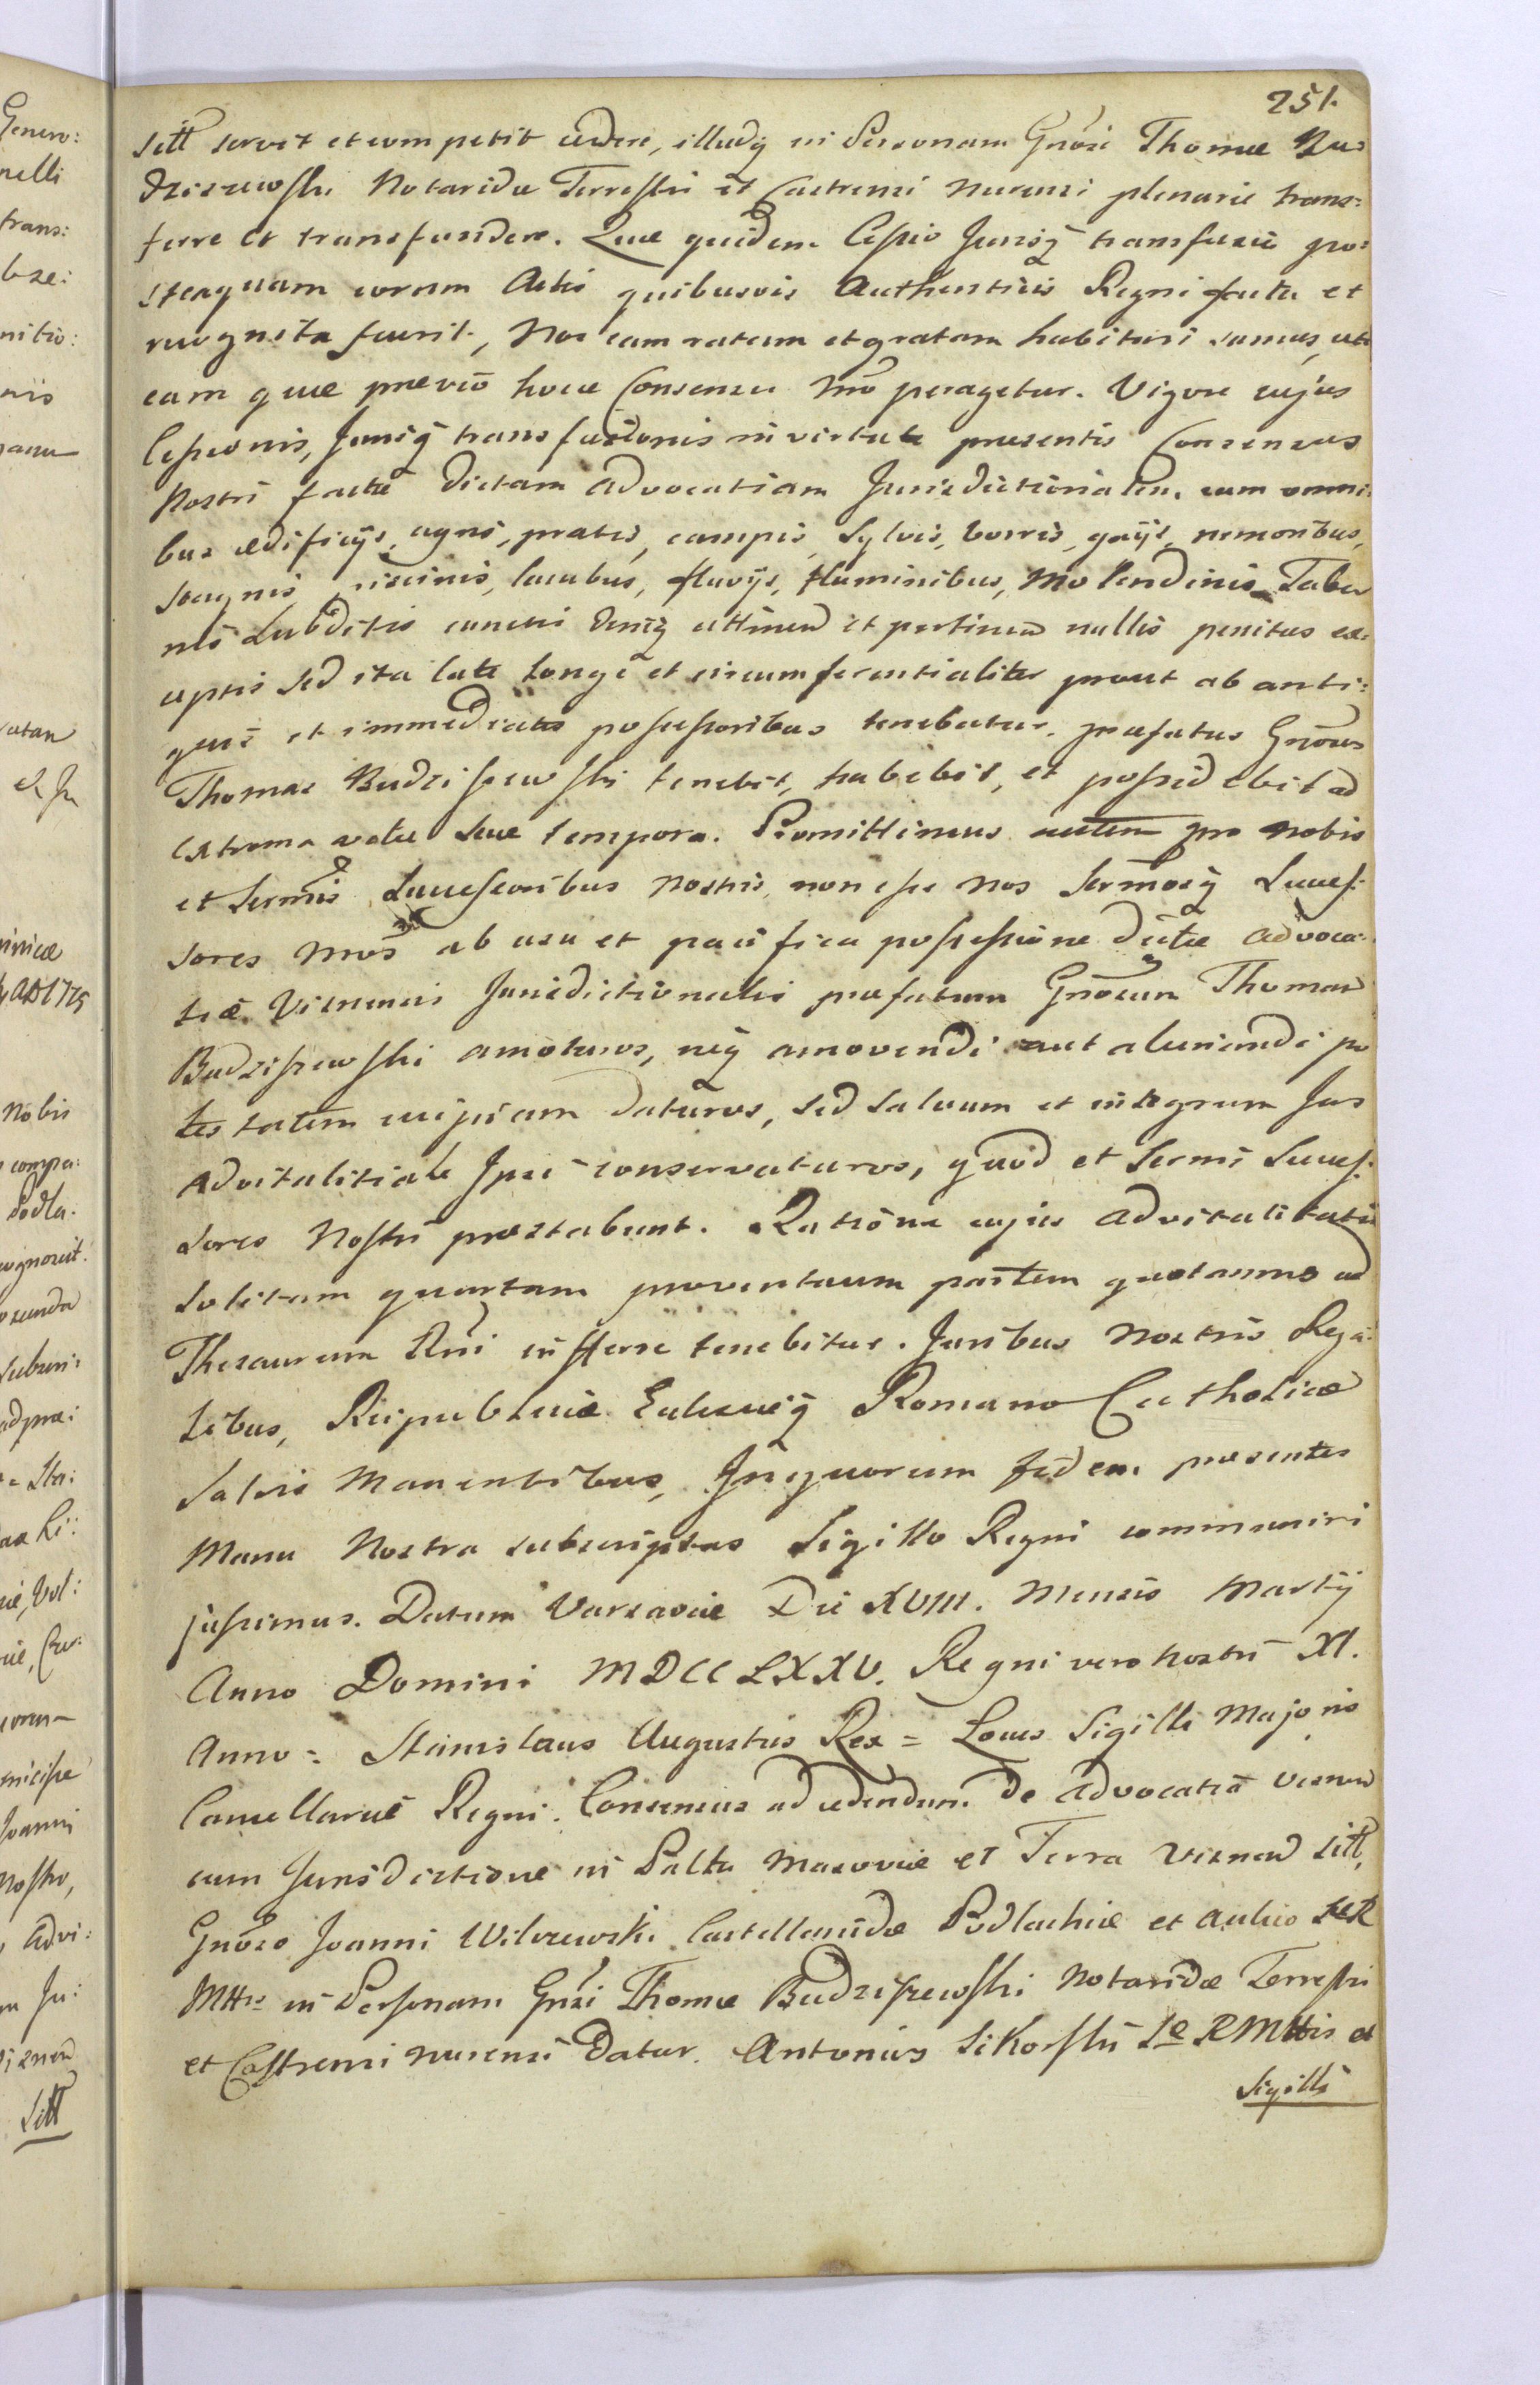 251.
sitt servit et competit cedere, illudq in Personam Gnosi Thomæ Bu=
dziszewski Notaridæ Terrestri et Castrensi Nurensi plenarie trans=
ferre et transfundere. Quæ quidem Cessio Jurisq transfusio po=
steaquam coram Actis quibusvis Authenticis Regni facta et
recognita fuerit, Nos eam ratam et gratam habituri sumus, uti
eam quæ prævio hocce Consensu Nro peragetur. Vigore cujus
Cessionis, Jurisq transfusionis in virtute præsentis Consensus
Nostri factæ dictam Advocatiam Jurisdictionalem cum omni=
bus ædificijs, agris, pratis, campis, sylvis, borris, gaijs, nemoribus,
stagnis, piscinis, lacubus, fluvijs, fluminibus, Molendinis Taber
nis Subditis cunctis deniq attinen et pertinen nullis penitus ex=
ceptis sed ita late longe et circumferentialiter prout ab anti=
quis et immediatis possessoribus tenebatur, præfatus Gnosus
Thomas Budziszewski tenebit, habebit, et possidebit ad
extrema vitæ suæ tempora. Promittimus autem pro Nobis
et Sermis Successoribus Nostris, non esse nos Sermosq Succes=
sores Nros ab usu et pacifica possessione dictæ Advoca=
tiæ Visnensis Jurisdictionalis præfatum Gnosum Thomam
Budziszewski amoturos, neq amovendi aut alienandi po
testatem cuipiam daturos, sed salvum et integrum Jus
Advitalitiale Ipsi conservaturos, quod et Sermi Succes=
sores Nostri præstabunt. Ratione cujus Advitalitatis
solitam quartam proventuum partem quotannis ad
Thesaurum Rni inferre tenebitur. Juribus Nostris Rega=
libus, Reipublicæ Ecclesiæq Romano Catholicæ
salvis manentibus, In quorum fidem præsentes
Manu Nostra subscriptas Sigillo Regni communiri
jussimus. Datum Varsaviæ Die XVIII. Mensis Martij
Anno Domini MDCCLXXV. Regni vero Nostri XI.
Anno = Stanislaus Augustus Rex = Locus Sigilli Majoris
Cancellariæ Regni. Consensus ad cedendum de Advocatia Visnen
cum Jurisdictione in Paltu Masoviæ et Terra Visnen sitt,
Gnoso Joanni Wilczewski Castellanidæ Podlachiæ et Aulico SeR
Mttis in Personam Gnsi Thomæ Budziszewski Notaridæ Terrestri
et Castrensi Nurensi datur. Antonius Sikorski Se R Mttis et
Sigilli